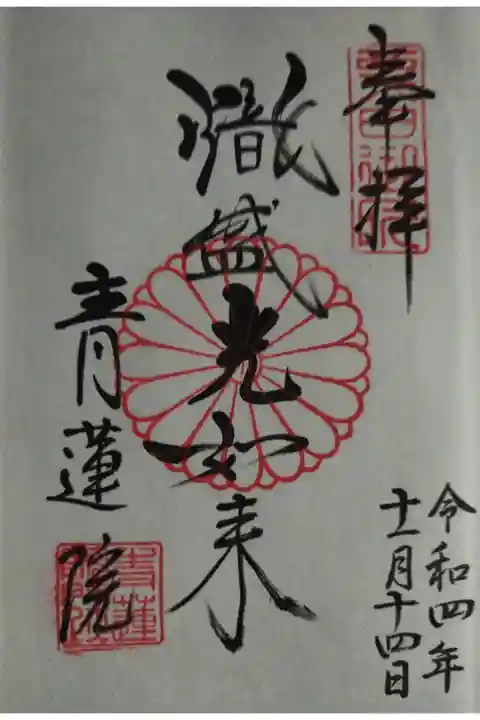 奉拝
令和四年
十一月十四日
熾盛光如来
青蓮院